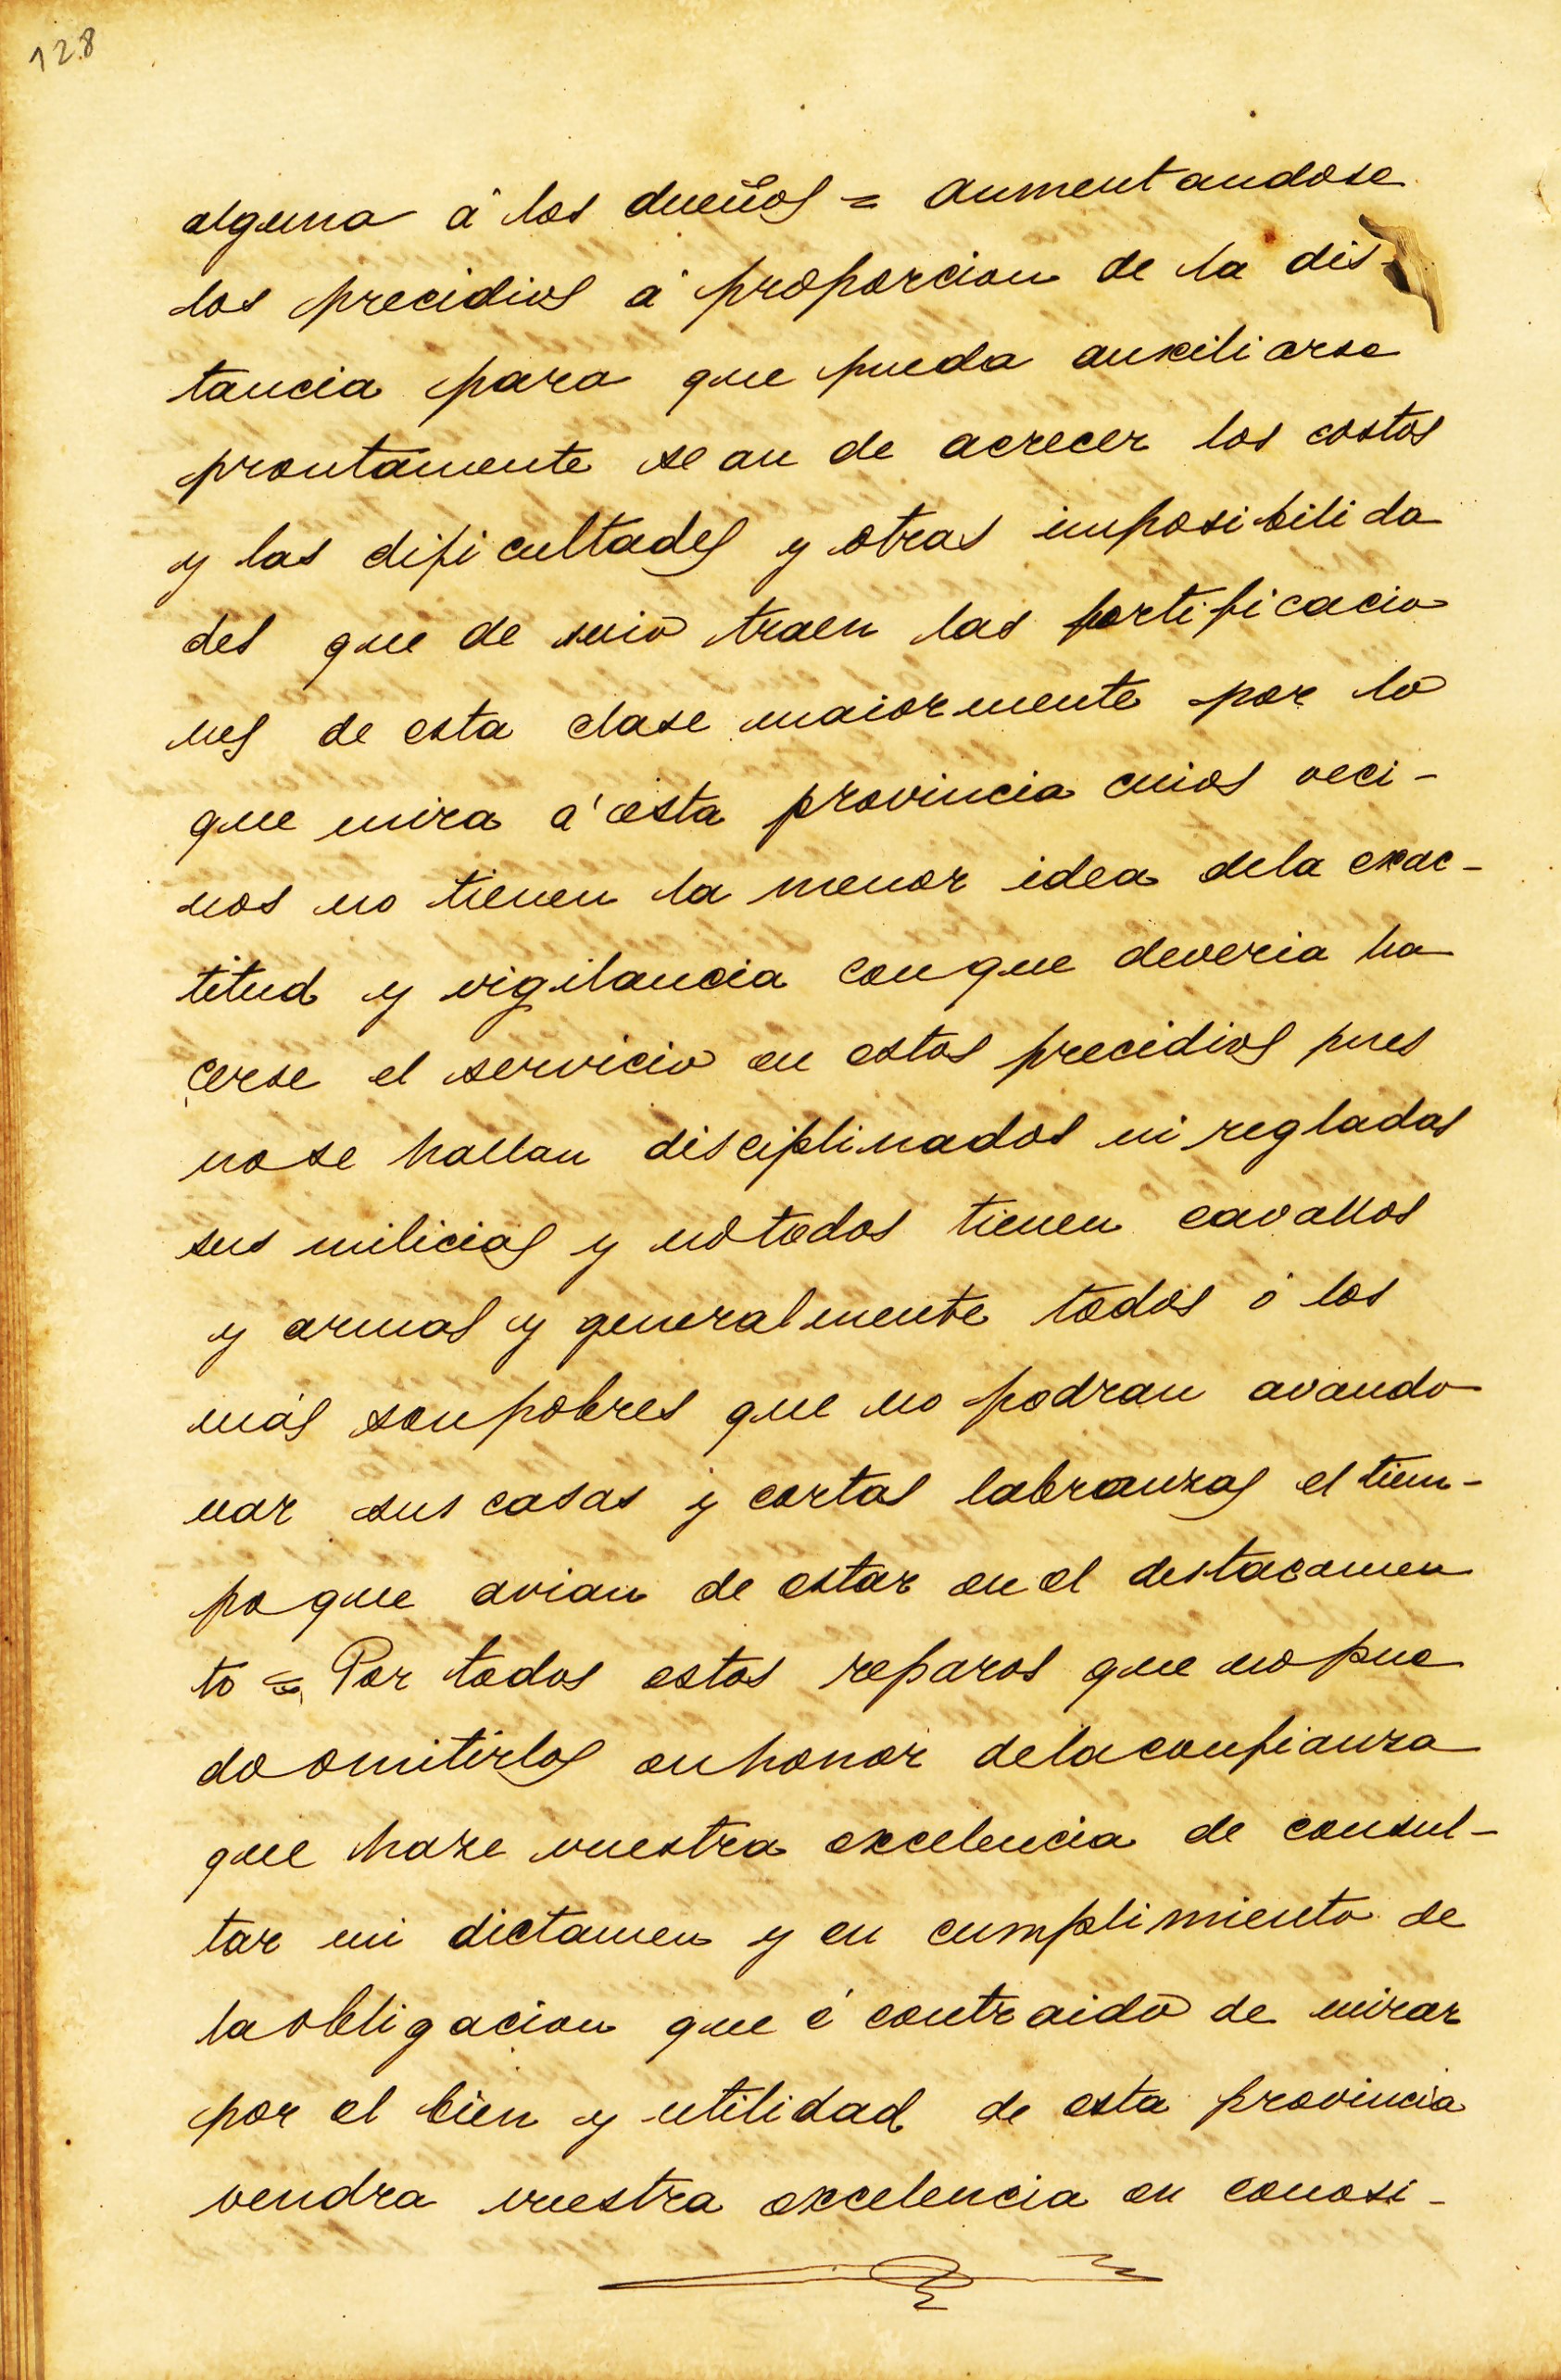 128
alguna á los dueños = aumentandose
los precidios á proporcion de la dis-
tancia para que pueda auxiliarse
prontamente se an de acrecer los costos
y las dificultades y otras imposibilida
des que de suio traen las fortificacio
nes de esta clase maiormente por lo
que mira á esta provincia cuios veci-
nos no tienen la menor idea dela exac-
titud y vigilancia conque deveria ha
cerse el servicio en estos precidios pues
nose hallan disciplinados ni regladas
sus milicias y nótodos tienen cavallos
y armas y generalmente todos ó los
más sonpobres que no podran avando
nar sus casas y cortas labranzas el tiem-
poque avian de estar en el destacamen
to = Por todos estos reparos que nopue
do omitirlos enhonor delaconfianza
que haze vuestra excelencia de consul-
tar mi dictamen y en cumplimiento de
laobligacion que é contraido de mirar
por el bien y utilidad de esta provincia
vendra vuestra excelencia en conosi-